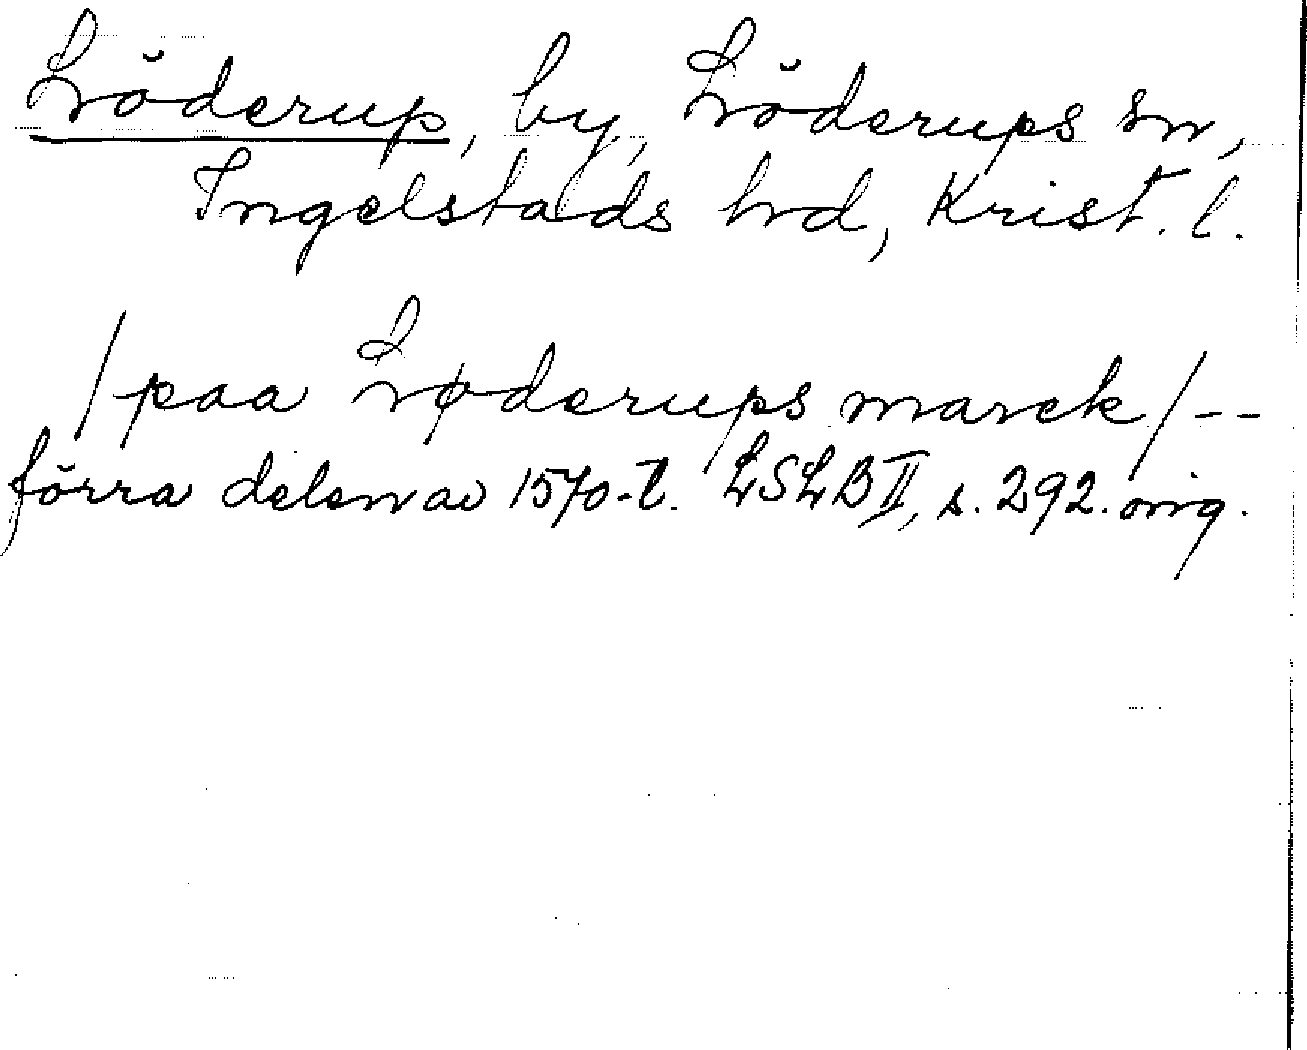 Löderup, by, Löderups sn,
Ingelstads hrd, Krist. l.
/paa Løderups marck/--
förra delen av 1570-t. LSLB II, s. 292. orig.